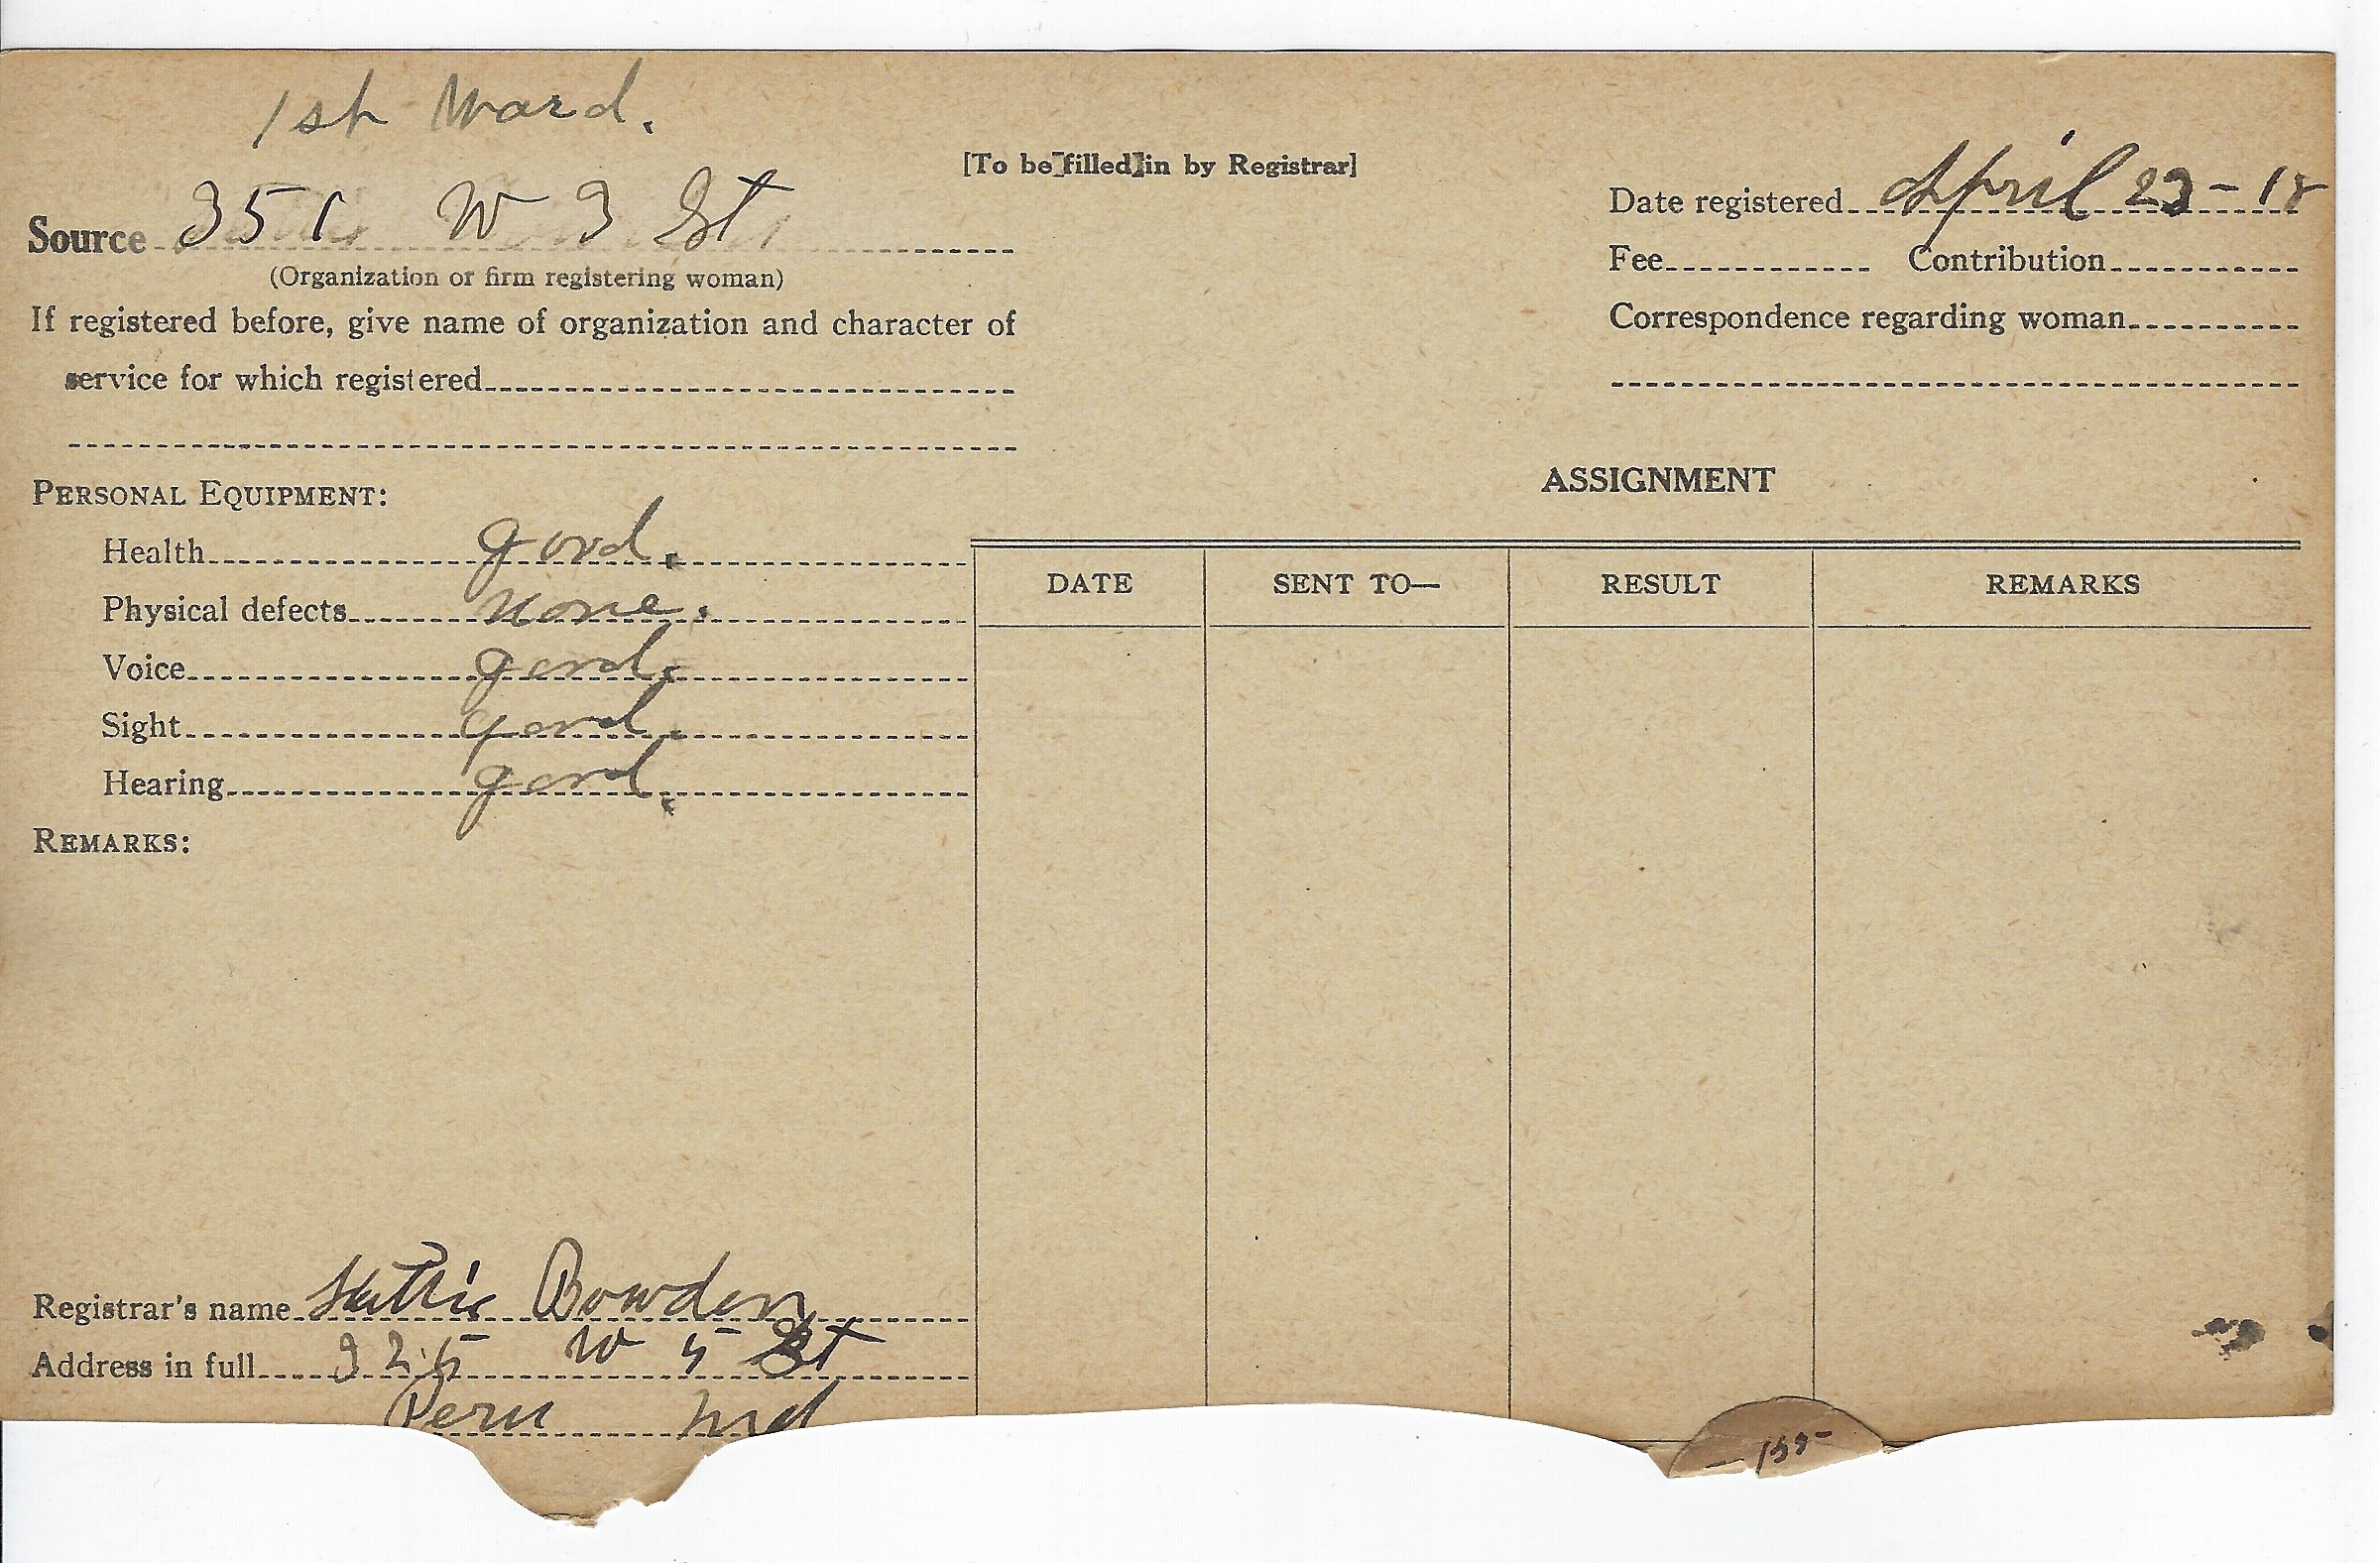 1st Ward.
[To be filled in by Registrar]
Source 351 W 3 St
(Organization or firm registering woman)
If registered before, give name of organization and character of
service for which registered
Date registered April 23-18
Fee Contribution
Correspondence regarding woman
PERSONAL EQUIPMENT:
Health good.
Physical defects None.
Voice good.
Sight good.
Hearing good.
REMARKS:
ASSIGNMENT
DATE SENT TO— RESULT REMARKS
Registrar's name Hattie Bowden
Address in full 325 W 5 St
Peru Ind